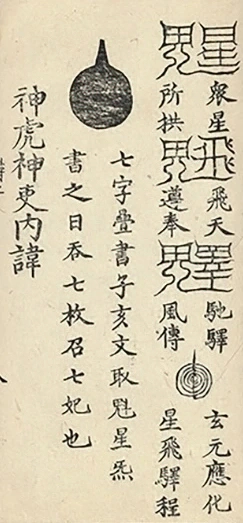 眾星　飛天　馳驛　玄元應化
所拱　遵奉　風傳　星飛驛程
七字疊書子亥文取魁星炁
書之日吞七枚召七妃也
神虎神吏内諱